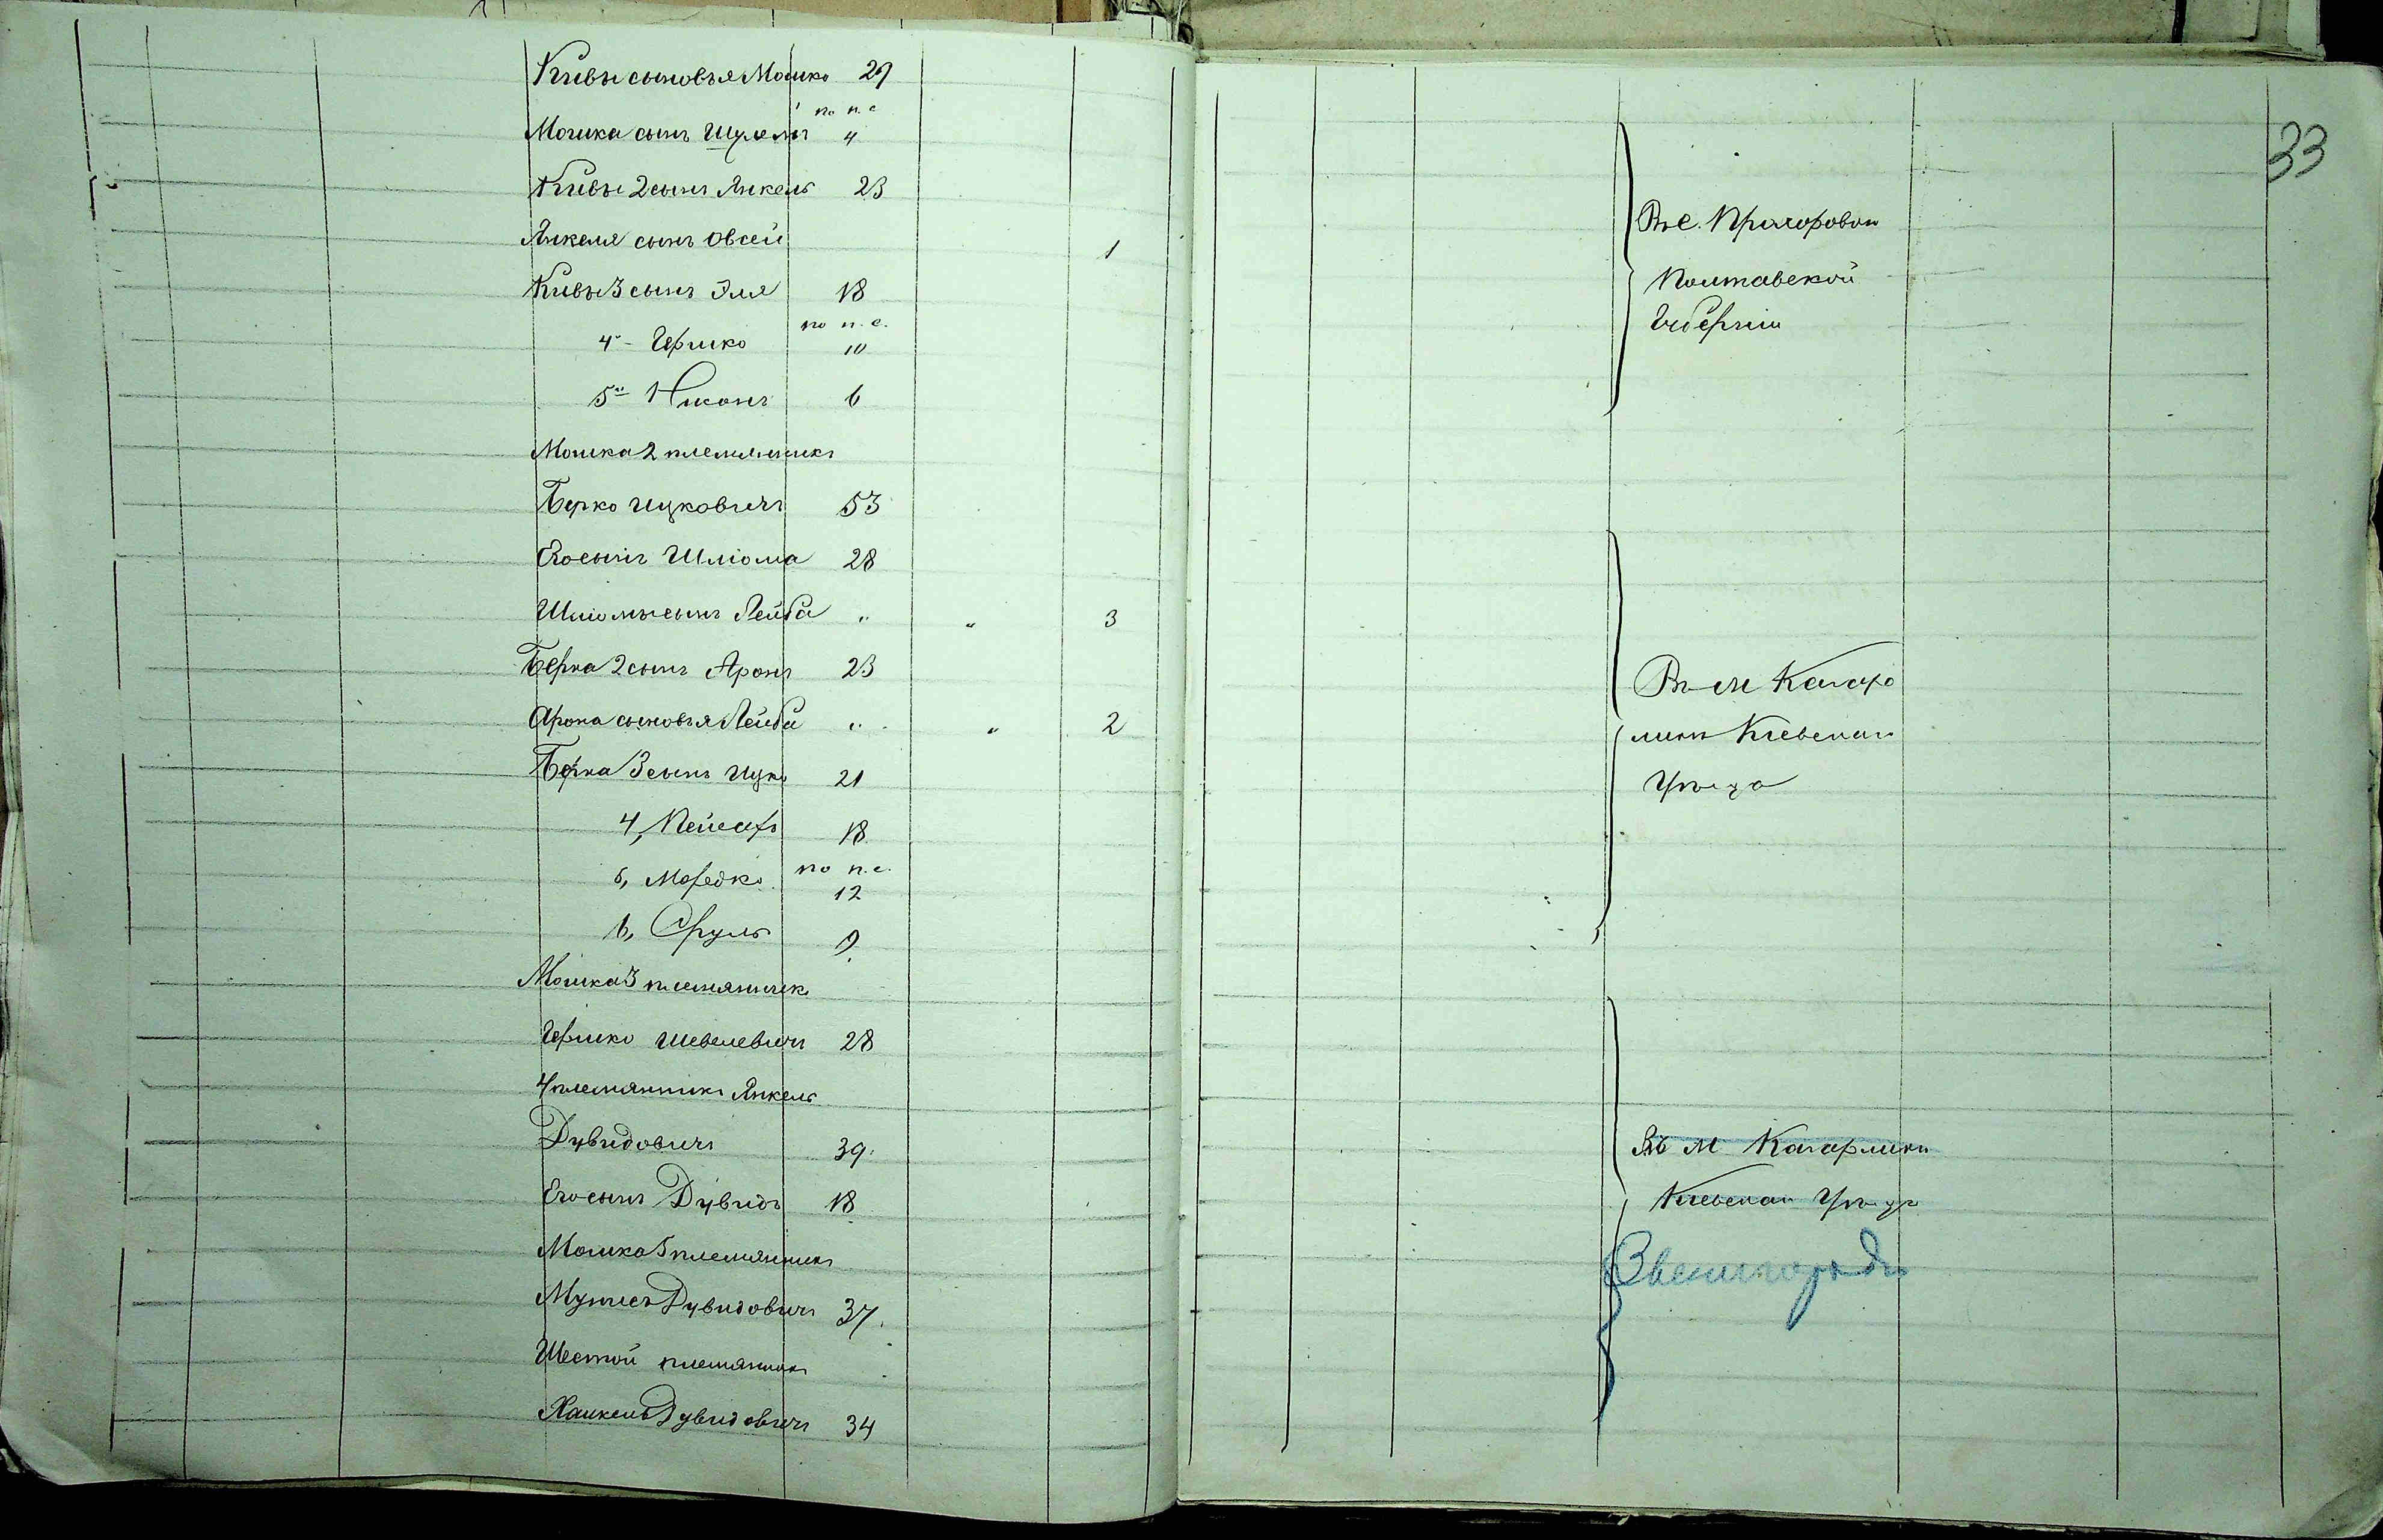 Кивы сыновья Мошко 29
по п. с.
Мошка сынъ Шулемъ 4
Кивы 2 сынъ Янкель 23
Янкеля сынъ Овсей 1
Кивы 3 сынъ Эля 18
по п. с.
4й Гершко 10
5й 6
Мошка 2 племянникъ
Берко Ицковичъ 53
Его сынъ Шліома 28
Шліомы сынъ Лейба " " 3
Берка 2 сынъ Аронъ 23
Арона сыновья Лейба " " 2
Берка 3 сынъ Ицко 21
4, Пейсахъ 18
по п. с.
5, Мордко 12
6, Сруль 9
Мошка 3 племянникъ
Гершко Шевелевичъ 28
4 племянникъ Янкель
Дувидовичъ 39
Его сынъ Дувидъ 18
Мошка 5 племянникъ
Дувидовичъ 37
Шестой племянникъ
Хаикель Дувидовичъ 34
33
Въ с. Прохоровки
Полтавской
Губерніи
Въ м Кагар
лики Кіевскаго
Уѣзда
Въ м Кагарлики
Кіевскаго Уѣзда
Звенигородк